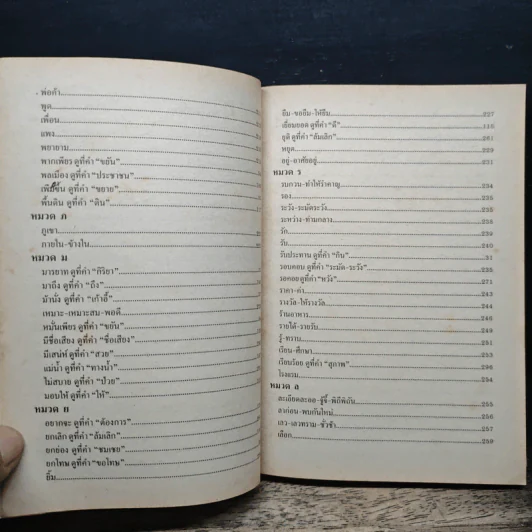 พ่อค้า
พูด
เพื่อน
แพง
พยายาม
พากเพียร ดูที่คำ “ขยัน”
พลเมือง ดูที่คำ “ประชาชน”
เพิ่มขึ้น ดูที่คำ “ขยาย”
พื้นดิน ดูที่คำ “ดิน”
หมวด ภ
ภูเขา
ภายใน-ข้างใน
หมวด ม
มารยาท ดูที่คำ “กิริยา”
มาถึง ดูที่คำ “ถึง”
ม้านั่ง ดูที่คำ “เก้าอี้”
เหมาะ-เหมาะสม-พอดี
หมั่นเพียร ดูที่คำ “ขยัน”
มีชื่อเสียง ดูที่คำ “ชื่อเสียง”
มีเสน่ห์ ดูที่คำ “สวย”
แม่น้ำ ดูที่คำ “ทางน้ำ”
ไม่สบาย ดูที่คำ “ป่วย”
มอบให้ ดูที่คำ “ให้”
หมวด ย
อยากจะ ดูที่คำ “ต้องการ”
ยกเลิก ดูที่คำ “ล้มเลิก”
ยกย่อง ดูที่คำ “ชมเชย”
ยกโทษ ดูที่คำ “ขอโทษ”
ยิ้ม
ยืม-ขอยืม-ให้ยืม 227
เยี่ยมยอด ดูที่คำ “ดี” 116
ยุติ ดูที่คำ “ล้มเลิก” 261
หยุด 229
อยู่-อาศัยอยู่ 231
หมวด ร
รบกวน-ทำให้รำคาญ 234
รอง
ระวัง-ระมัดระวัง 235
ระหว่าง-ท่ามกลาง
รัก
รับ 240
รับประทาน ดูที่คำ “กิน” 31
รอบคอบ ดูที่คำ “ระมัด-ระวัง” 235
รอคอย ดูที่คำ “หวัง”
ราคา-ค่า
รางวัล-ให้รางวัล
ร้านอาหาร
รายได้-รายรับ 249
รู้-ทราบ
เรียน-ศึกษา
เรียบร้อย ดูที่คำ “สุภาพ” 296
โรงแรม 254
หมวด ล
ละเอียดละออ-จู้จี้-พิถีพิถัน 255
ลาก่อน-พบกันใหม่ 257
เลว-เลวทราม-ชั่วช้า
เลือก 259